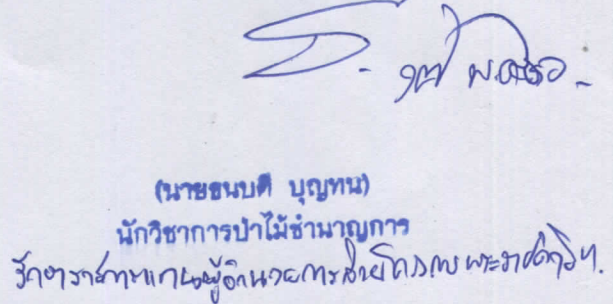 ๑๗ พ.ค. ๖๐
(นายธนบดี บุญทน)
นักวิชาการป่าไม้ชำนาญการ
รักษาราชการแทนผู้อำนวยการส่วนโครงการพระราชดำริฯ